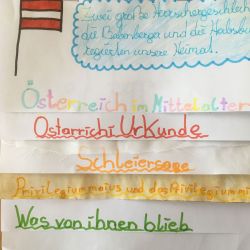 Zwei große Herrschergeschlech
die Babenberger und die Habsbur
regierten unsere Heimat.
Österreich im Mittelalter
Ostarrichi Urkunde
Schleiersage
Privilegium maius und das Privilegium mi
Was von ihnen blieb